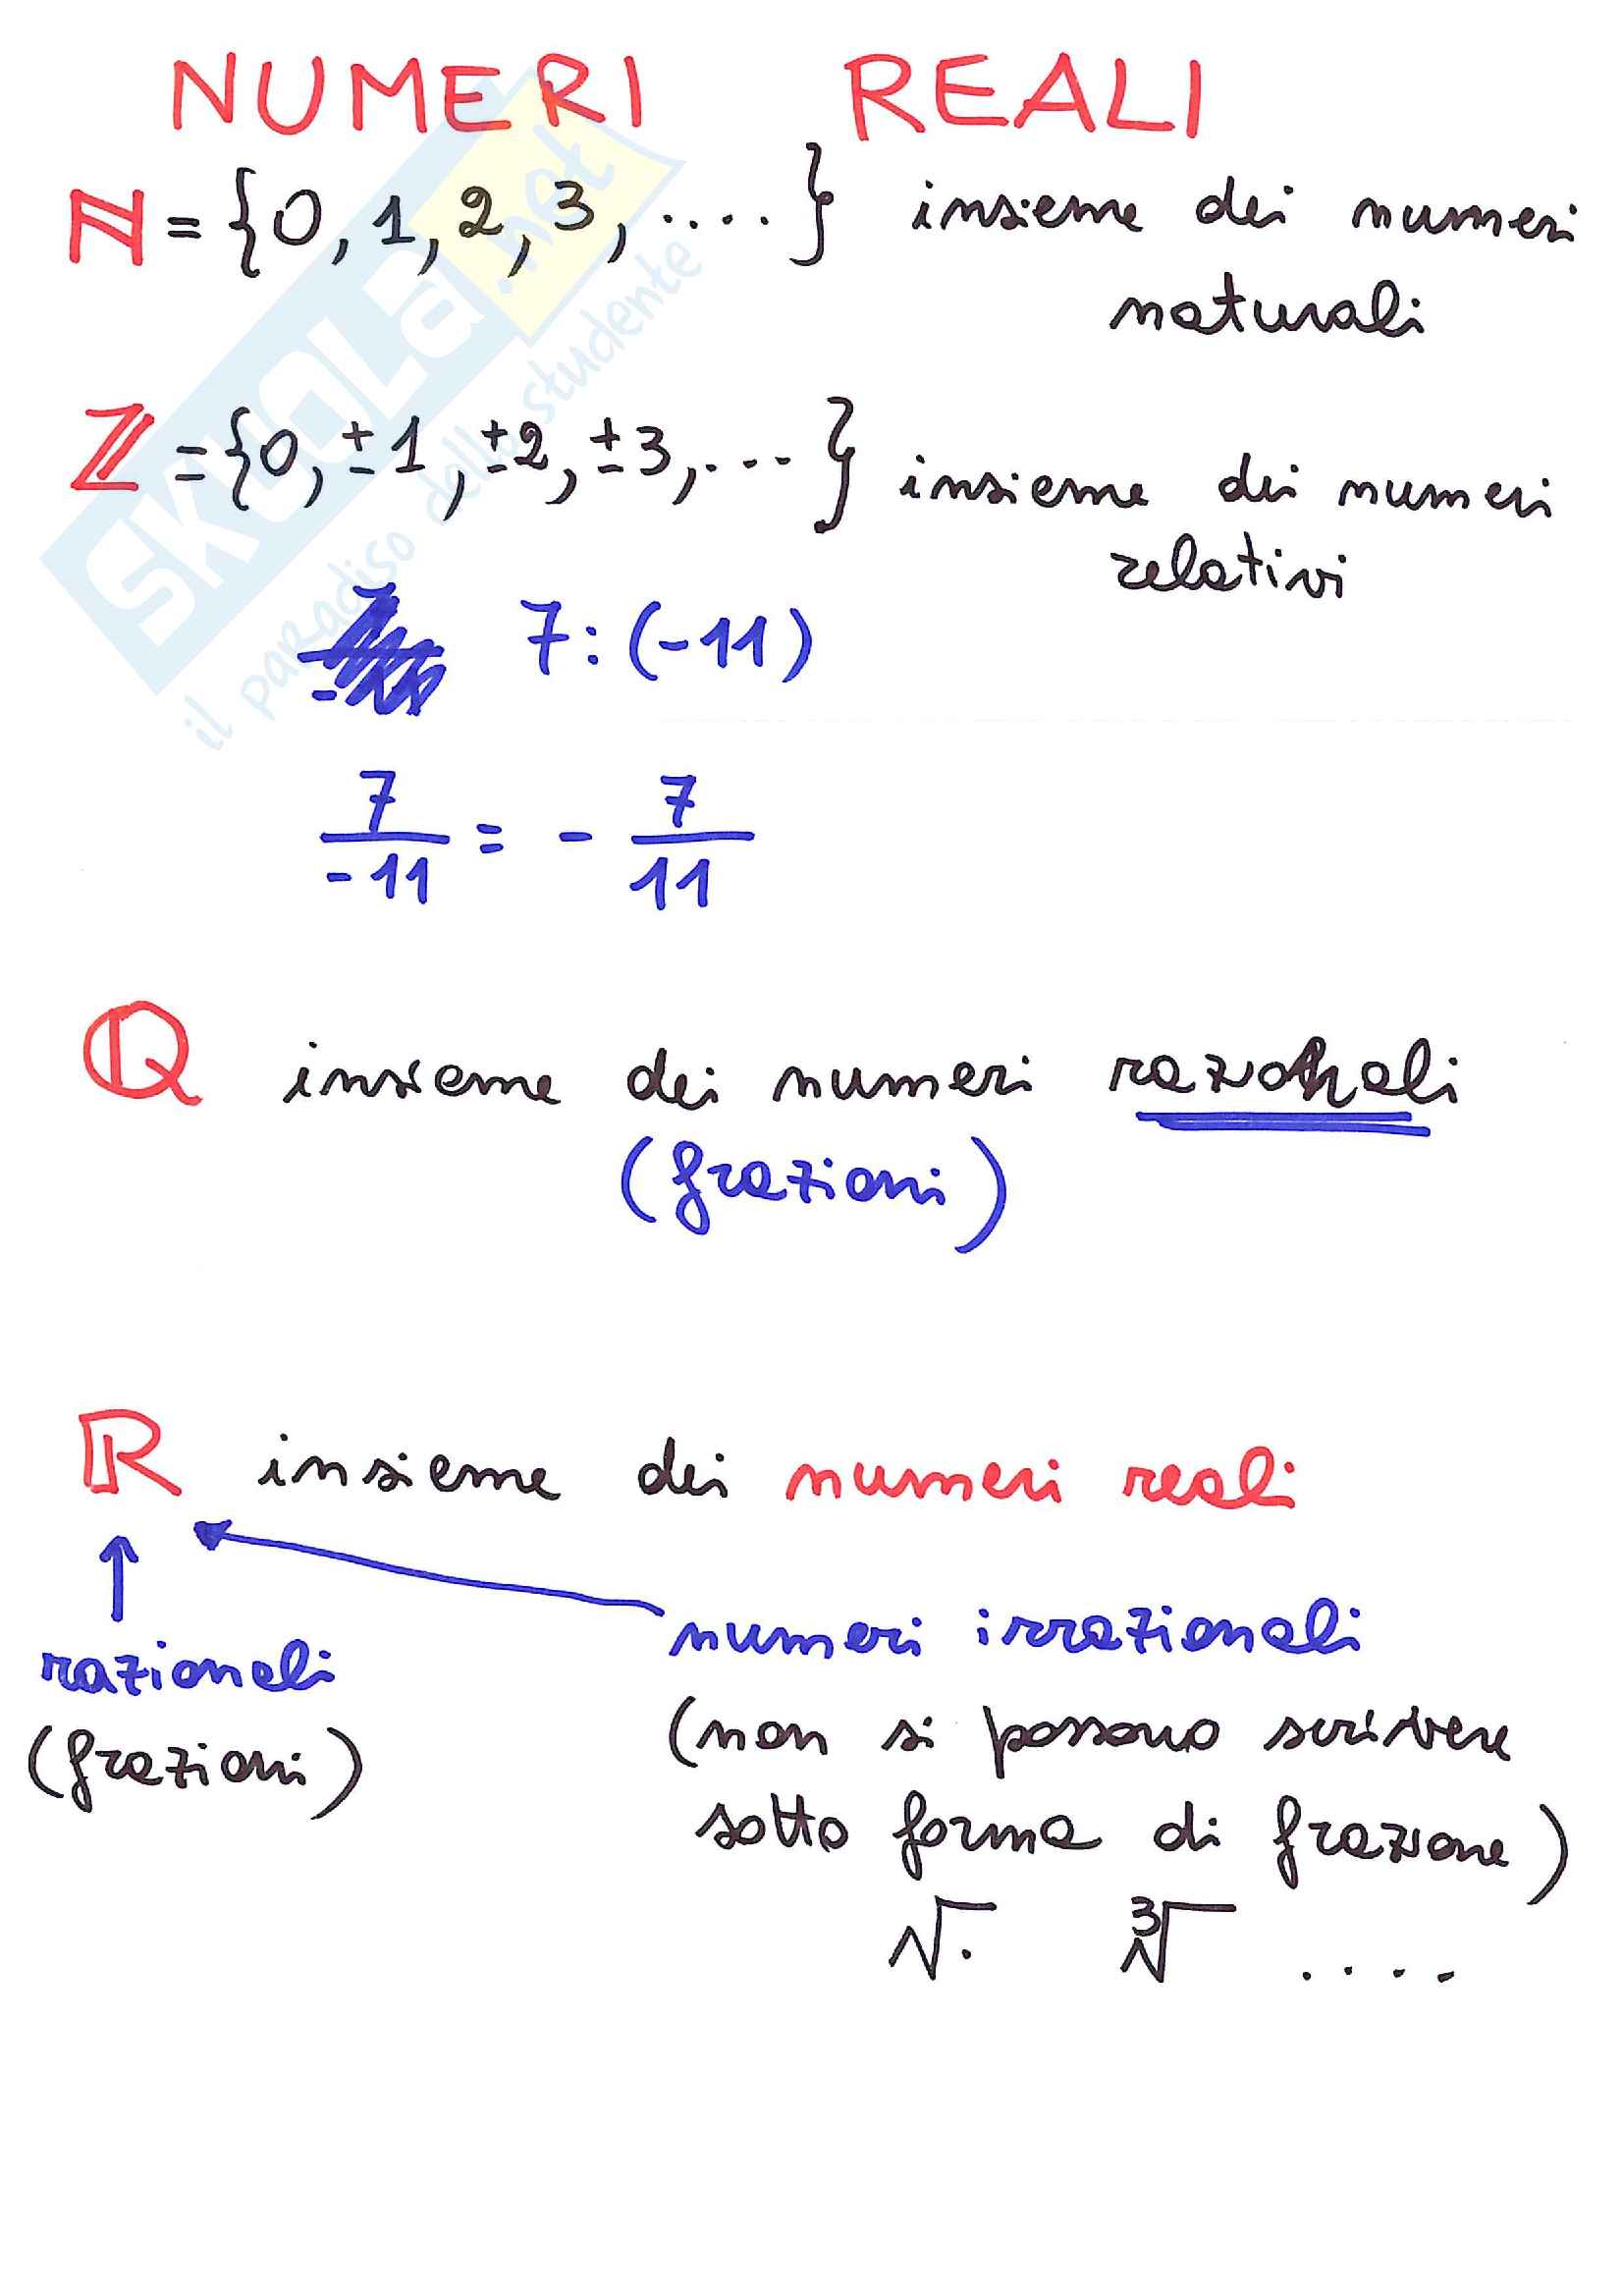 NUMERI REALI
ℕ = {0, 1, 2, 3, ....} insieme dei numeri
naturali
ℤ = {0, ±1, ±2, ±3, ...} insieme dei numeri
relativi
7 : (-11)
7/-11 = - 7/11
ℚ insieme dei numeri razionali
(frazioni)
ℝ insieme dei numeri reali
↑
razionali
(frazioni)
numeri irrazionali
(non si possono scrivere
sotto forma di frazione)
√. ∛ ....
SKUOLA.net
il paradiso dello studente